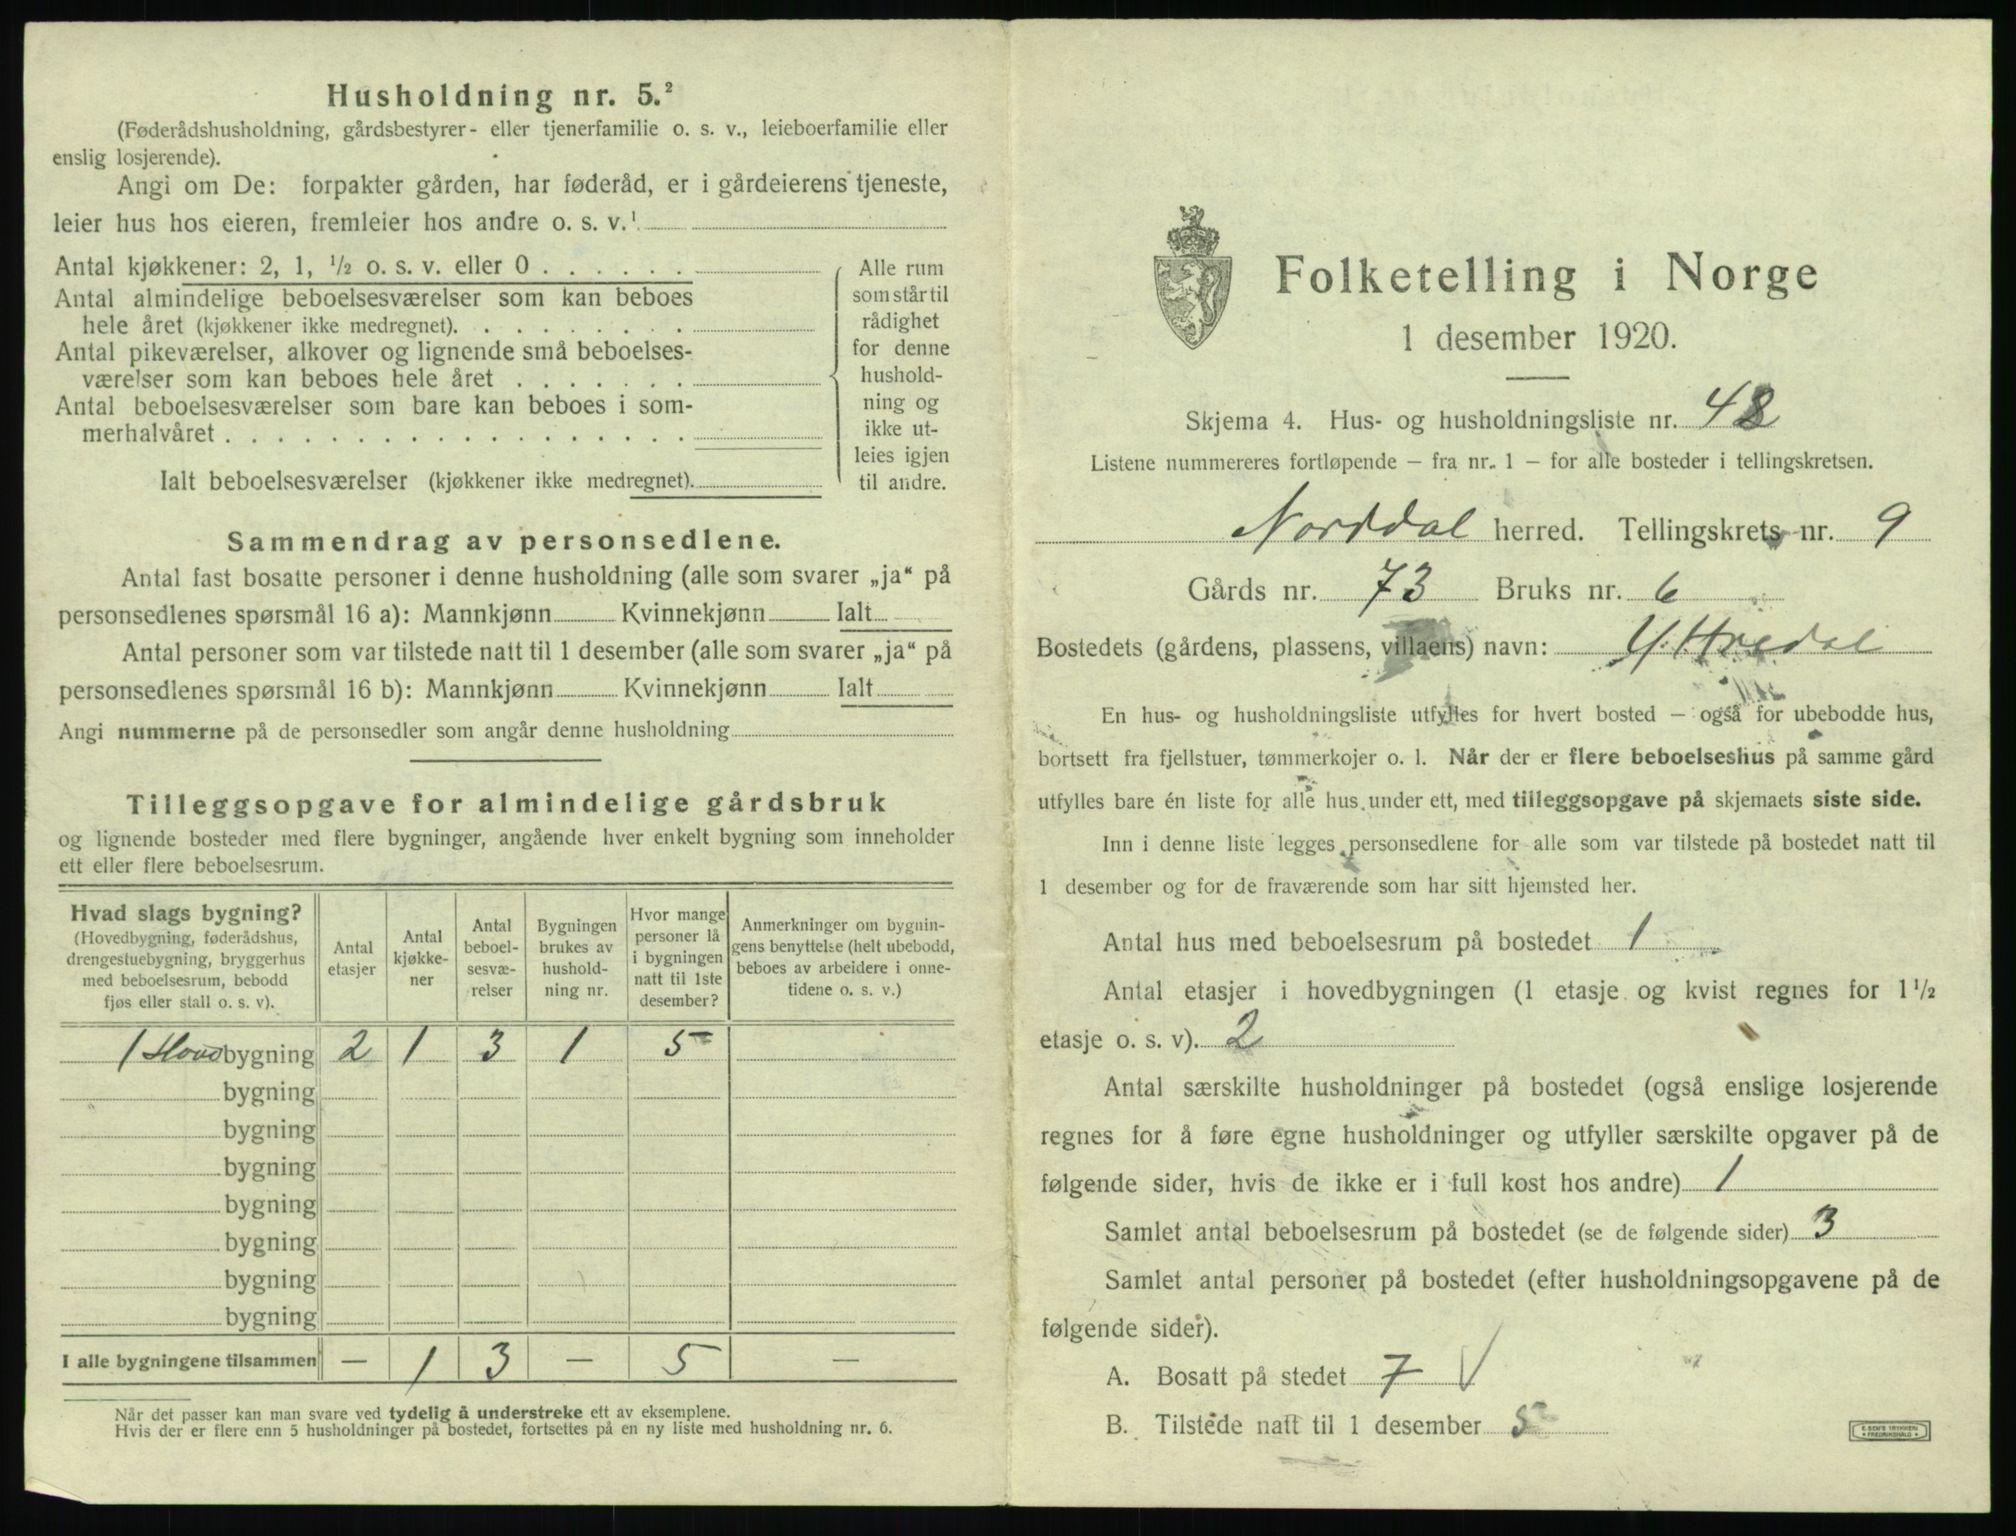 Husholdning nr. 5.²
(Føderådshusholdning, gårdsbestyrer- eller tjenerfamilie o. s. v., leieboerfamilie eller
enslig losjerende).
Angi om De: forpakter gården, har føderåd, er i gårdeierens tjeneste,
leier hus hos eieren, fremleier hos andre o. s. v.¹
Antal kjøkkener: 2, 1, ½ o. s. v. eller 0 . . . . . .
Antal almindelige beboelsesværelser som kan beboes
hele året (kjøkkener ikke medregnet). . . . . . . . .
Antal pikeværelser, alkover og lignende små beboelses-
værelser som kan beboes hele året . . . . . . .
Antal beboelsesværelser som bare kan beboes i som-
merhalvåret . . . . . . . . . . . . . . . . . .
Ialt beboelsesværelser (kjøkkener ikke medregnet).
Alle rum
som står til
rådighet
for denne
hushold-
ning og
ikke ut-
leies igjen
til andre.
Sammendrag av personsedlene.
Antal fast bosatte personer i denne husholdning (alle som svarer „ja“ på
personsedlenes spørsmål 16 a): Mannkjønn Kvinnekjønn Ialt
Antal personer som var tilstede natt til 1 desember (alle som svarer „ja“ på
personsedlenes spørsmål 16 b): Mannkjønn Kvinnekjønn Ialt
Angi nummerne på de personsedler som angår denne husholdning
Tilleggsopgave for almindelige gårdsbruk
og lignende bosteder med flere bygninger, angående hver enkelt bygning som inneholder
ett eller flere beboelsesrum.
Hvad slags bygning?
(Hovedbygning, føderådshus,
drengestuebygning, bryggerhus
med beboelsesrum, bebodd
fjøs eller stall o. s. v).
Antal
etasjer
Antal
kjøkke-
ner
Antal
beboel-
sesvæ-
relser
Bygningen
brukes av
hushold-
ning nr.
Hvor mange
personer lå
i bygningen
natt til 1ste
desember?
Anmerkninger om bygnin-
gens benyttelse (helt ubebodd,
beboes av arbeidere i onne-
tidene o. s. v.)
1 Hovedbygning 2 1 3 1 5
bygning
bygning
bygning
bygning
bygning
bygning
bygning
I alle bygningene tilsammen — 1 3 — 5 —
Når det passer kan man svare ved tydelig å understreke ett av eksemplene.
Hvis der er flere enn 5 husholdninger på bostedet, fortsettes på en ny liste med husholdning nr. 6.
Folketelling i Norge
1 desember 1920.
Skjema 4. Hus- og husholdningsliste nr. 48
Listene nummereres fortløpende – fra nr. 1 – for alle bosteder i tellingskretsen.
Norddal herred. Tellingskrets nr. 9
Gårds nr. 73 Bruks nr. 6
Bostedets (gårdens, plassens, villaens) navn: Y. Hredal
En hus- og husholdningsliste utfylles for hvert bosted – også for ubebodde hus,
bortsett fra fjellstuer, tømmerkojer o. l. Når der er flere beboelseshus på samme gård
utfylles bare én liste for alle hus under ett, med tilleggsopgave på skjemaets siste side.
Inn i denne liste legges personsedlene for alle som var tilstede på bostedet natt til
1 desember og for de fraværende som har sitt hjemsted her.
Antal hus med beboelsesrum på bostedet 1
Antal etasjer i hovedbygningen (1 etasje og kvist regnes for 1½
etasje o. s. v). 2
Antal særskilte husholdninger på bostedet (også enslige losjerende
regnes for å føre egne husholdninger og utfyller særskilte opgaver på de
følgende sider, hvis de ikke er i full kost hos andre) 1
Samlet antal beboelsesrum på bostedet (se de følgende sider) 3
Samlet antal personer på bostedet (efter husholdningsopgavene på de
følgende sider).
A. Bosatt på stedet 7 √
B. Tilstede natt til 1 desember 5